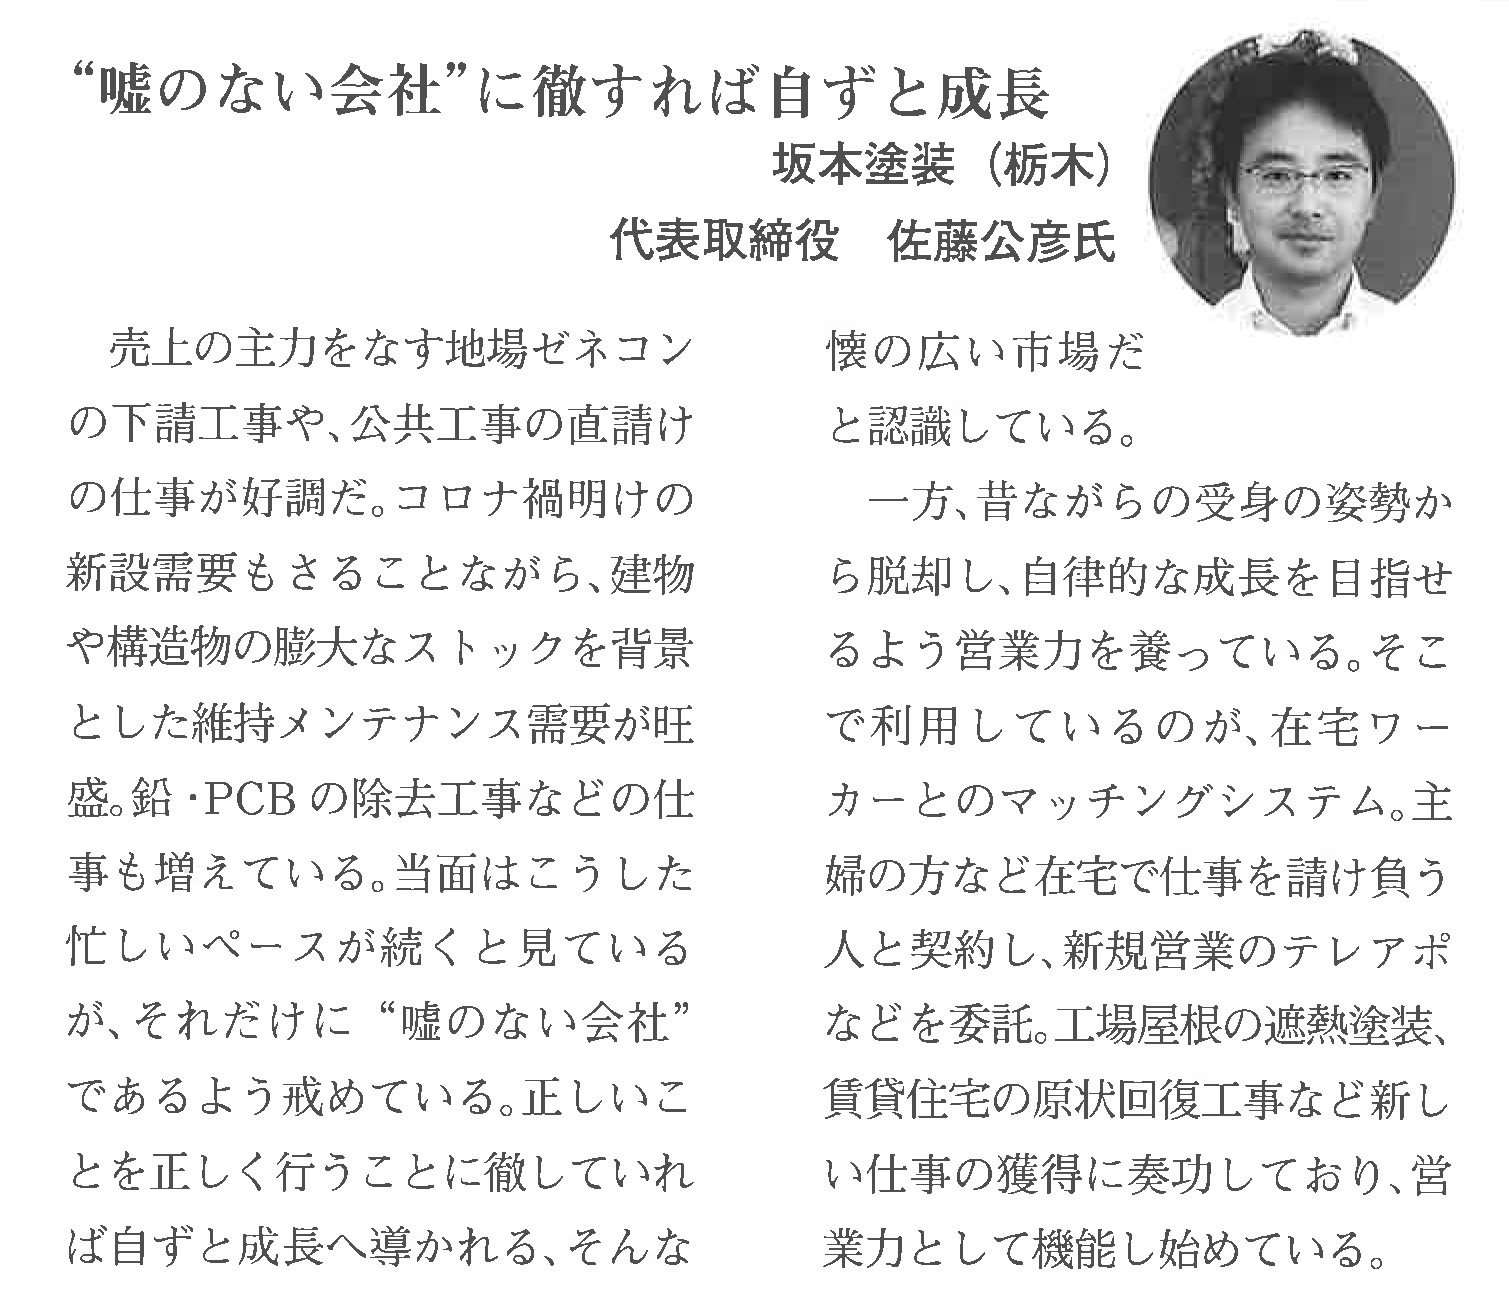 “嘘のない会社”に徹すれば自ずと成長
坂本塗装（栃木）
代表取締役　佐藤公彦氏
売上の主力をなす地場ゼネコン
の下請工事や、公共工事の直請け
の仕事が好調だ。コロナ禍明けの
新設需要もさることながら、建物
や構造物の膨大なストックを背景
とした維持メンテナンス需要が旺
盛。鉛・PCBの除去工事などの仕
事も増えている。当面はこうした
忙しいペースが続くと見ている
が、それだけに“嘘のない会社”
であるよう戒めている。正しいこ
とを正しく行うことに徹していれ
ば自ずと成長へ導かれる、そんな
懐の広い市場だ
と認識している。
一方、昔ながらの受身の姿勢か
ら脱却し、自律的な成長を目指せ
るよう営業力を養っている。そこ
で利用しているのが、在宅ワー
カーとのマッチングシステム。主
婦の方など在宅で仕事を請け負う
人と契約し、新規営業のテレアポ
などを委託。工場屋根の遮熱塗装、
賃貸住宅の原状回復工事など新し
い仕事の獲得に奏功しており、営
業力として機能し始めている。